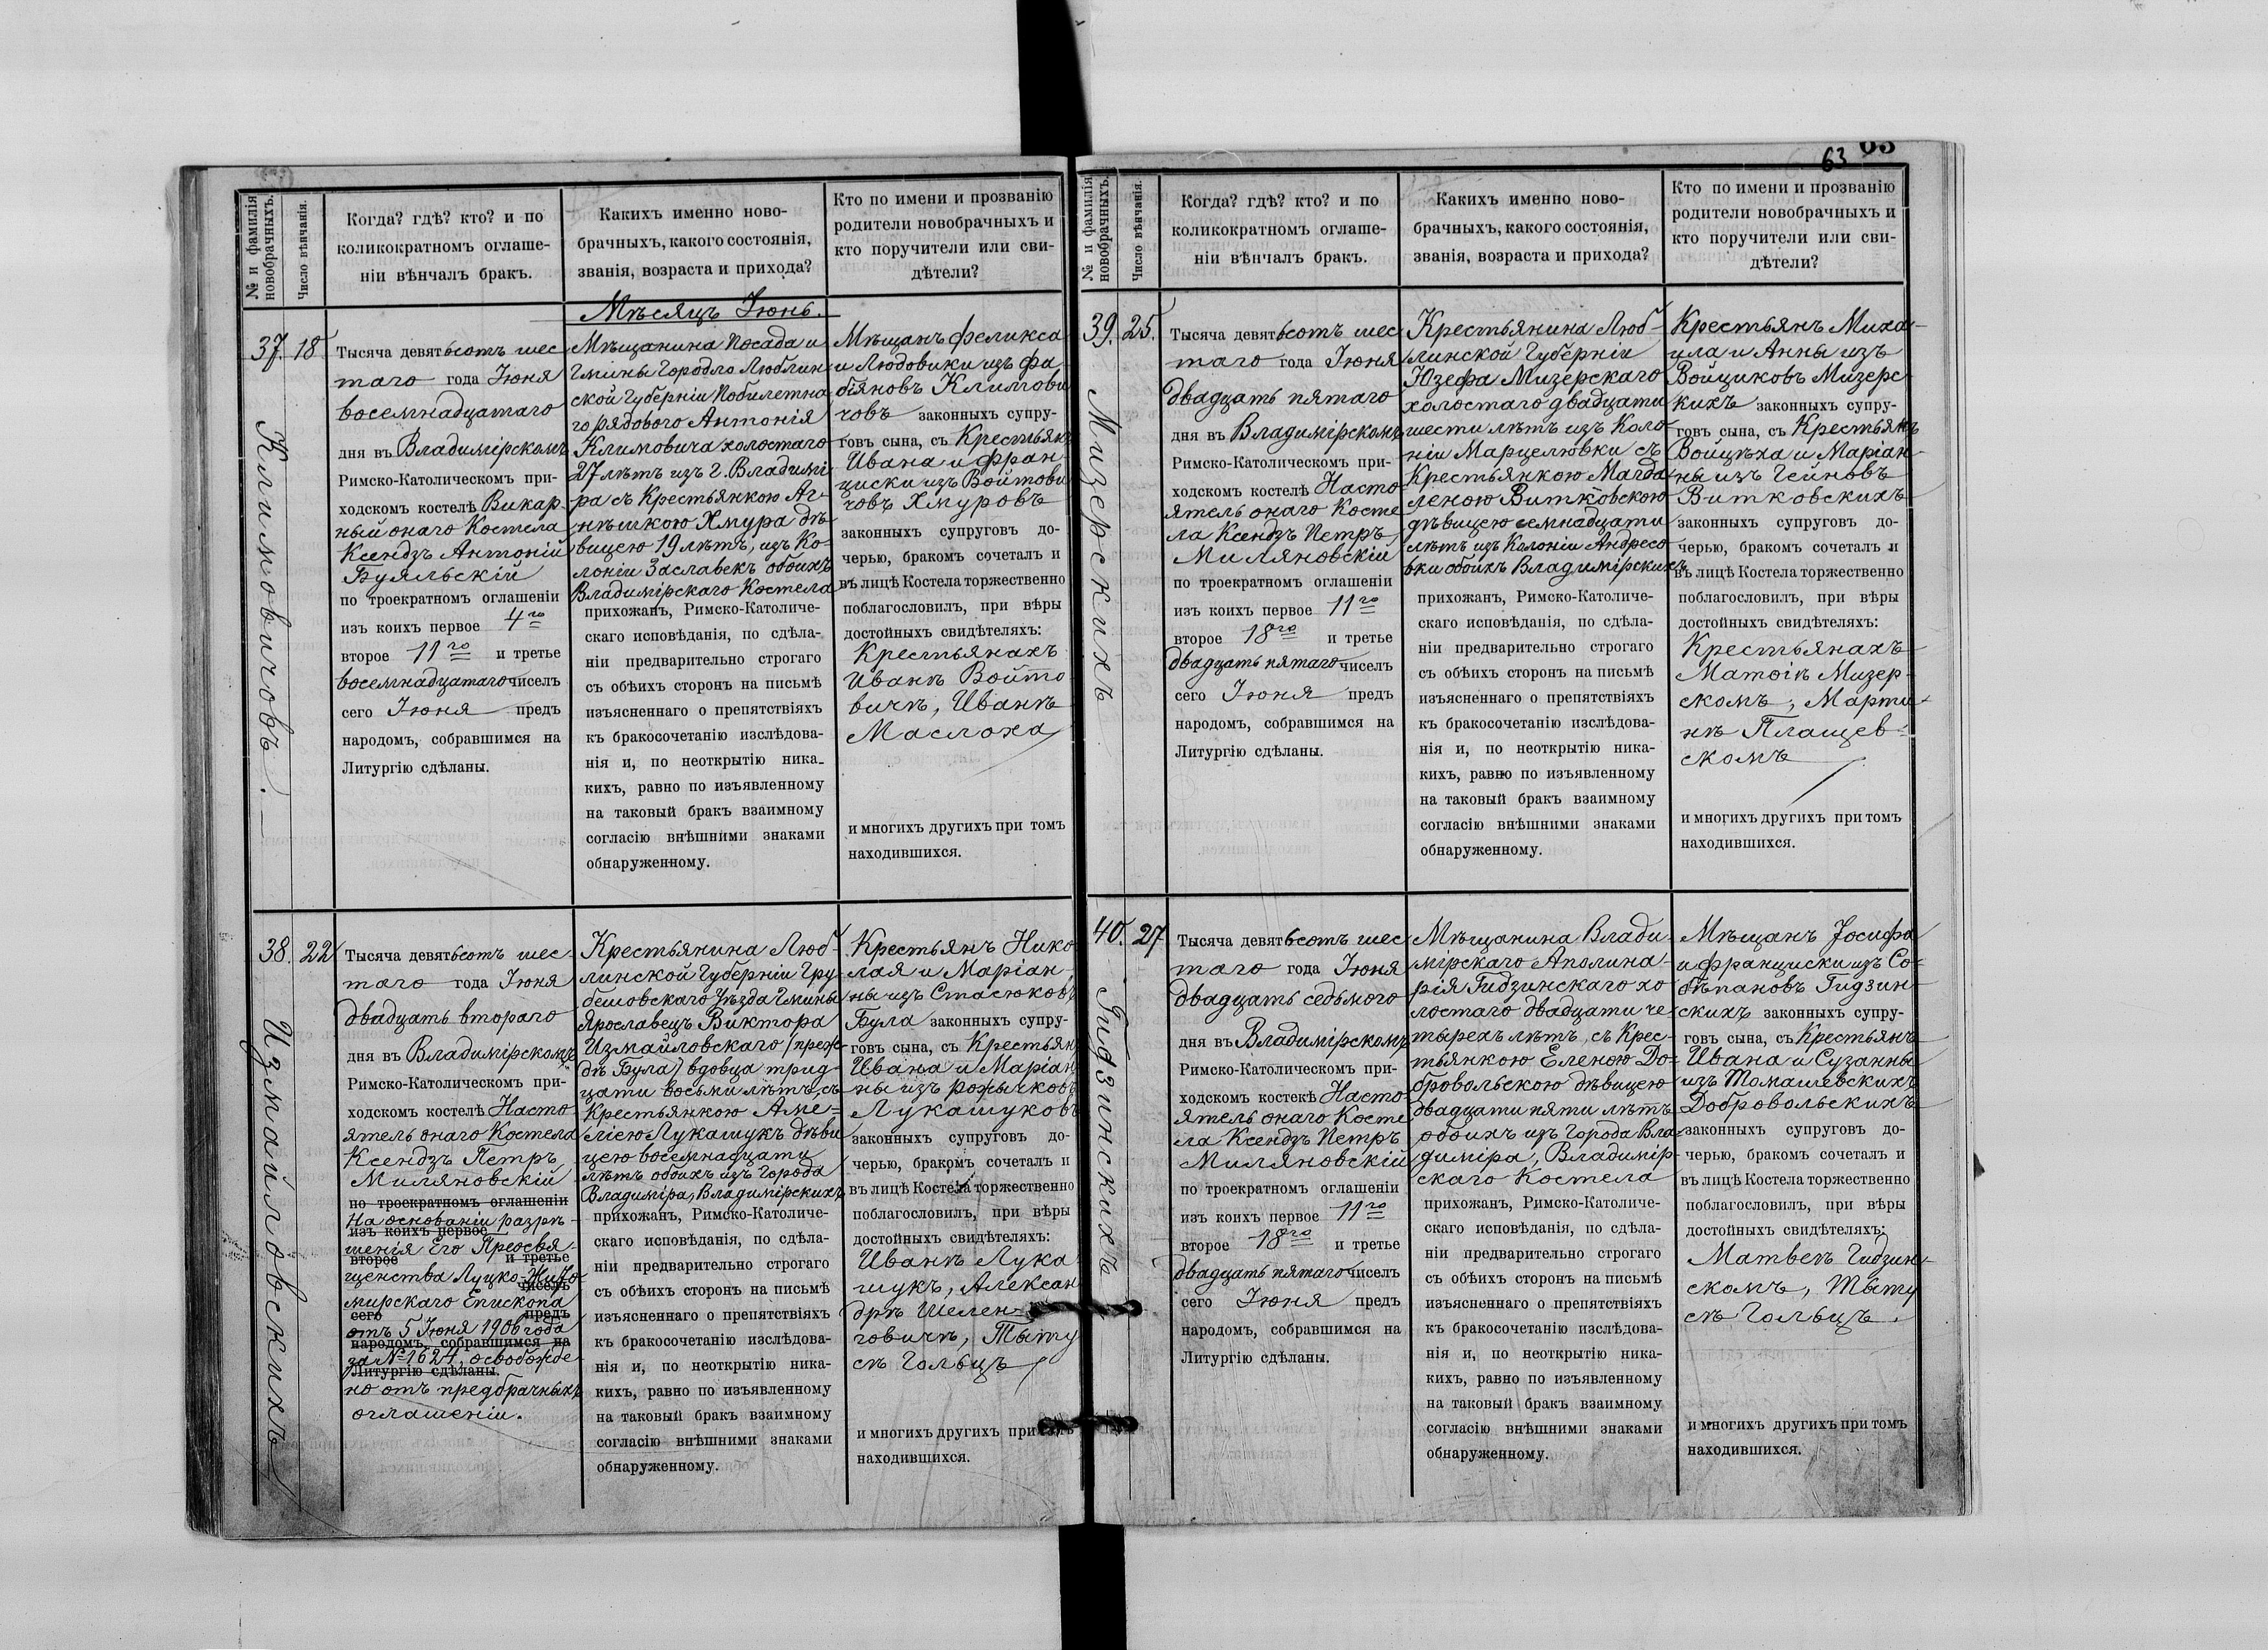 63 63
№ и фамилія новобрачныхъ.
Число вѣнчанія.
Когда? гдѣ? кто? и по
коликократномъ оглаше-
ніи вѣнчалъ бракъ.
Какихъ именно ново-
брачныхъ, какого состоянія,
званія, возраста и прихода?
Кто по имени и прозванію
родители новобрачныхъ и
кто поручители или сви-
дѣтели?
Мѣсяцъ Іюнь.
37. 18
Климовичовъ.
Тысяча девятьсотъ шес
таго года Іюня
восемнадцатаго
дня въ Владимірскомъ
Римско-Католическомъ при-
ходскомъ костелѣ Викар
ный онаго Костела
Ксендзъ Антоній
Буяльскій
по троекратномъ оглашеніи
изъ коихъ первое 4го
второе 11го и третье
восемнадцатаго чиселъ
сего Іюня предъ
народомъ, собравшимся на
Литургію сдѣланы.
Мѣщанина Посада и
Гмины Городло Люблин
ской Губерніи Побилетна
го рядового Антонія
Климовича холостаго
27 лѣтъ изъ г. Владимі
ра съ Крестьянкою Аг-
нѣшкою Хмура дѣ-
вицею 19 лѣтъ, изъ Ко-
лоніи Заславекъ обоихъ
Владимірскаго Костела
прихожанъ, Римско-Католиче-
скаго исповѣданія, по сдѣла-
ніи предварительно строгаго
съ обѣихъ сторонъ на письмѣ
изъясненнаго о препятствіяхъ
къ бракосочетанію изслѣдова-
нія и, по неоткрытію ника-
кихъ, равно по изъявленному
на таковый бракъ взаимному
согласію внѣшними знаками
обнаруженному.
Мѣщанъ Феликса
и Людовики изъ Фа-
біяновъ Климови
човъ законныхъ супру-
говъ сына, съ Крестьянъ
Ивана и Фран-
циски изъ Войтови
човъ Хмуровъ
законныхъ супруговъ до-
черью, бракомъ сочеталъ и
въ лицѣ Костела торжественно
поблагословилъ, при вѣры
достойныхъ свидѣтеляхъ:
Крестьянахъ
Иванѣ Войто
вичѣ, Иванѣ
Маслоха
и многихъ другихъ при томъ
находившихся.
38. 22
Измайловскихъ
Тысяча девятьсотъ шес-
таго года Іюня
двадцать втораго
дня въ Владимірскомъ
Римско-Католическомъ при-
ходскомъ костелѣ Насто
ятель онаго Костела
Ксендзъ Петръ
Миляновскій
по троекратномъ оглашеніи
На основаніи разрѣ-
изъ коихъ первое
шенія Его Преосвя-
второе и третье
щенства Луцко-Жито-
чиселъ
мирскаго Епископа
сего предъ
отъ 5 Іюня 1906 года
народомъ, собравшимся на
за № 1624, освобожде
Литургію сдѣланы.
но отъ предбрачныхъ
оглашеніи.
Крестьянина Люб-
линской Губерніи Гру
бешовскаго Уѣзда Гмины
Ярославецъ Виктора
Измайловскаго (преж-
дѣ Була) вдовца трид-
цати восьми лѣтъ, съ
Крестьянкою Аме-
лією Лукашукъ дѣви
цею восемнадцати
лѣтъ обоихъ изъ Города
Владиміра, Владимірскихъ
прихожанъ, Римско-Католиче-
скаго исповѣданія, по сдѣла-
ніи предварительно строгаго
съ обѣихъ сторонъ на письмѣ
изъясненнаго о препятствіяхъ
къ бракосочетанію изслѣдова-
нія и, по неоткрытію ника-
кихъ, равно по изъявленному
на таковый бракъ взаимному
согласію внѣшними знаками
обнаруженному.
Крестьянъ Нико
лая и Маріан-
ны изъ Стасюковъ
Була законныхъ супру-
говъ сына, съ Крестьянъ
Ивана и Маріан
ны изъ Рожычковъ
Лукашуковъ
законныхъ супруговъ до-
черью, бракомъ сочеталъ и
въ лицѣ Костела торжественно
поблагословилъ, при вѣры
достойныхъ свидѣтеляхъ:
Иванѣ Лука
шукъ, Алексан
дрѣ Шелен-
говичѣ, Тыту
съ Гольцъ
и многихъ другихъ при томъ
находившихся.
№ и фамилія новобрачныхъ.
Число вѣнчанія.
Когда? гдѣ? кто? и по
коликократномъ оглаше-
ніи вѣнчалъ бракъ.
Какихъ именно ново-
брачныхъ, какого состоянія,
званія, возраста и прихода?
Кто по имени и прозванію
родители новобрачныхъ и
кто поручители или сви-
дѣтели?
39. 25.
Мизерскихъ
Тысяча девятьсотъ шес
таго года Іюня
двадцать пятаго
дня въ Владимірскомъ
Римско-Католическомъ при-
ходскомъ костелѣ Насто
ятель онаго Косте
ла Ксендзъ Петръ
Миляновскій
по троекратномъ оглашеніи
изъ коихъ первое 11го
второе 18го и третье
двадцать пятаго чиселъ
сего Іюня предъ
народомъ, собравшимся на
Литургію сдѣланы.
Крестьянина Люб-
линской Губерніи
Юзефа Мизерскаго
холостаго двадцати
шести лѣтъ изъ Коло
ніи Марцелювки съ
Крестьянкою Магда
леною Витковскою
дѣвицею семнадцати
лѣтъ изъ Колоніи Андресо
вки обоихъ Владимірскихъ
прихожанъ, Римско-Католиче-
скаго исповѣданія, по сдѣла-
ніи предварительно строгаго
съ обѣихъ сторонъ на письмѣ
изъясненнаго о препятствіяхъ
къ бракосочетанію изслѣдова-
нія и, по неоткрытію ника-
кихъ, равно по изъявленному
на таковый бракъ взаимному
согласію внѣшними знаками
обнаруженному.
Крестьянъ Миха-
ила и Анны изъ
Войциковъ Мизерс
кихъ законныхъ супру-
говъ сына, съ Крестьянъ
Войцѣха и Маріан-
ны изъ Гейновъ
Витковскихъ
законныхъ супруговъ до-
черью, бракомъ сочеталъ и
въ лицѣ Костела торжественно
поблагословилъ, при вѣры
достойныхъ свидѣтеляхъ:
Крестьянахъ
Матоіѣ Мизер-
скомъ, Марти-
нѣ Плащев-
скомъ
и многихъ другихъ при томъ
находившихся.
40. 27
Гидзинскихъ
Тысяча девятьсотъ шес
таго года Іюня
двадцать седьмого
дня въ Владимірскомъ
Римско-Католическомъ при-
ходскомъ костекѣ Насто
ятель онаго Косте
ла Ксендзъ Петръ
Миляновскій
по троекратномъ оглашеніи
изъ коихъ первое 11го
второе 18го и третье
двадцать пятаго чиселъ
сего Іюня предъ
народомъ, собравшимся на
Литургію сдѣланы.
Мѣщанина Влади-
мірскаго Аполина-
рія Гидзинскаго хо
лостаго двадцати че-
тырехъ лѣтъ, съ Крес-
тьянкою Еленою До-
бровольскою дѣвицею
двадцати пяти лѣтъ
обоихъ изъ Города Вла-
диміра, Владимір-
скаго Костела
прихожанъ, Римско-Католиче-
скаго исповѣданія, по сдѣла-
ніи предварительно строгаго
съ обѣихъ сторонъ на письмѣ
изъясненнаго о препятствіяхъ
къ бракосочетанію изслѣдова-
нія и, по неоткрытію ника-
кихъ, равно по изъявленному
на таковый бракъ взаимному
согласію внѣшними знаками
обнаруженному.
Мѣщанъ Іосифа
и Франциски изъ Со-
бѣпановъ Гидзин-
скихъ законныхъ супру-
говъ сына, съ Крестьянъ
Ивана и Сузанны
изъ Томашевскихъ
Добровольскихъ
законныхъ супруговъ до-
черью, бракомъ сочеталъ и
въ лицѣ Костела торжественно
поблагословилъ, при вѣры
достойныхъ свидѣтеляхъ:
Матвеѣ Гидзин-
скомъ, Тыту
съ Гольцъ.
и многихъ другихъ при томъ
находившихся.